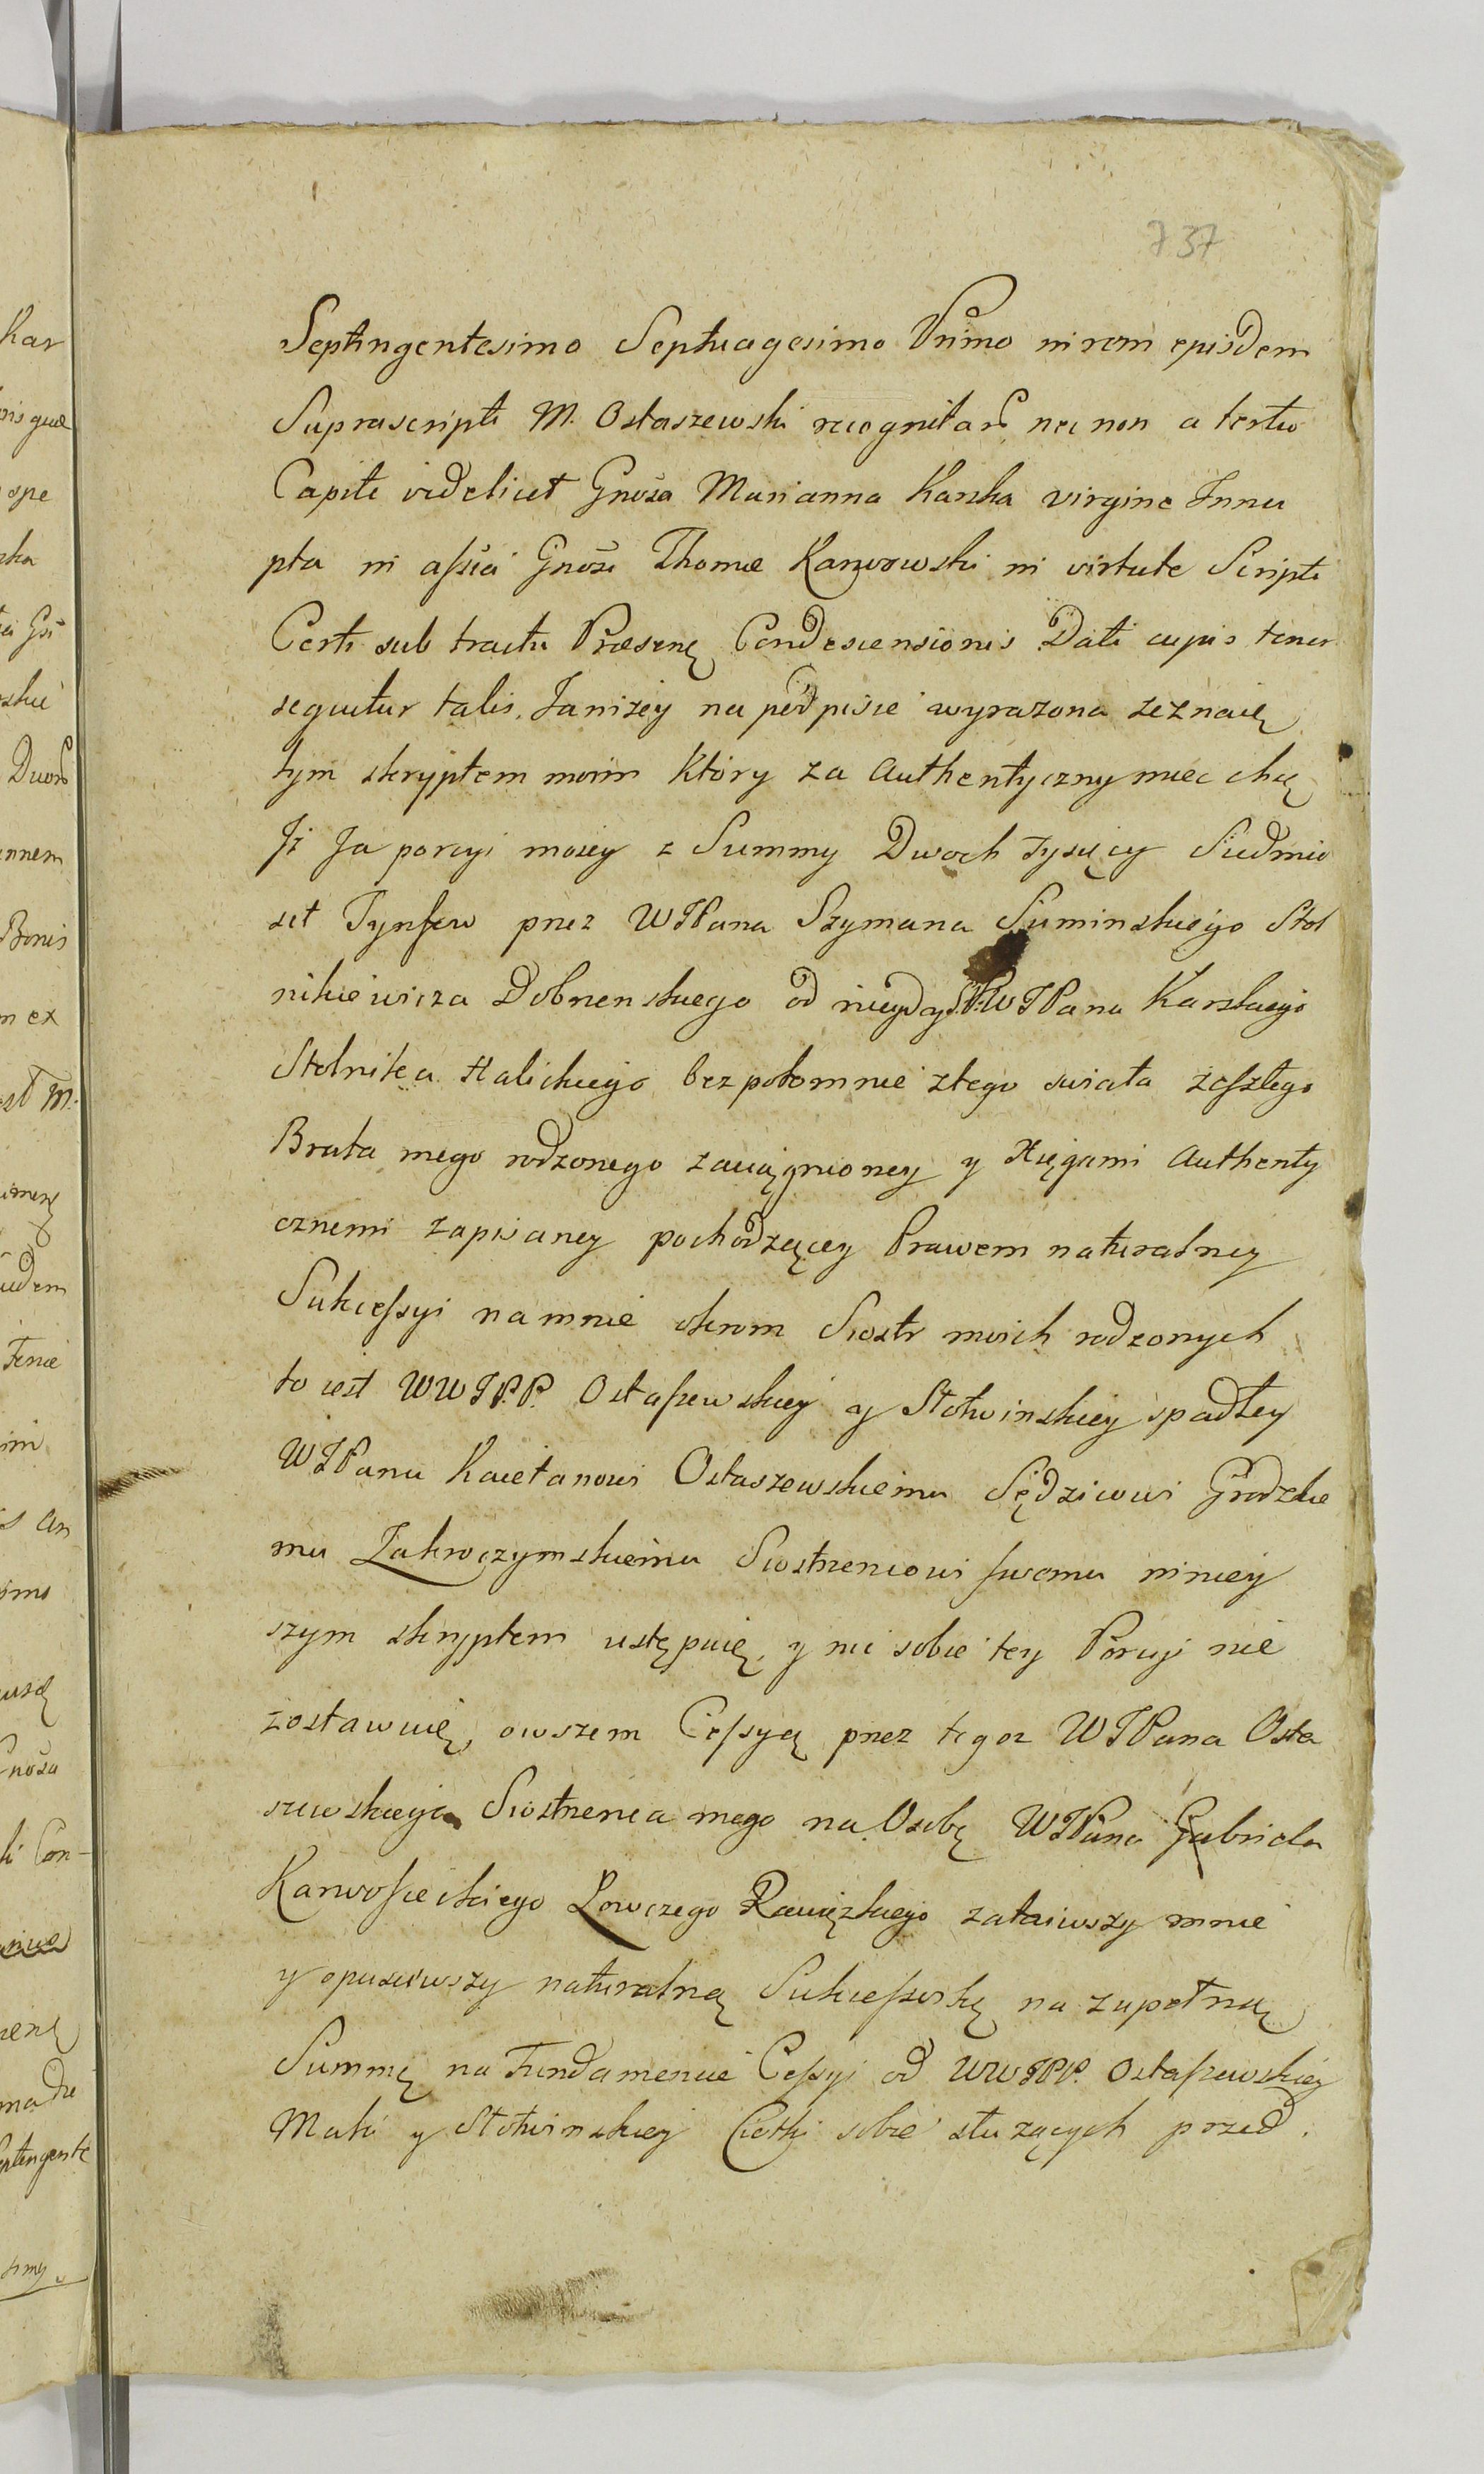 737
Septingentesimo Septuagesimo Primo in rem ejusdem
Suprascripti M. Ostaszewski recognitarũ nec non a tertio
Capite videlicet Gnosa Marianna Karska virgine Innu
pta in assiā Gnosi Thomæ Karwowski in virtute Scripti
Certi sub tractu Præsenę Condescensionis Dati cujus tenor
sequitur talis. Ja niżey na podpisie wyrażona zeznaię
tym skryptem moim który za Authentyczny miec chcę
Jż Ja porcyi moiey z Summy Dwoch tysięcy Siedmio
set Tynfow przez WJPana Szymana Suminskiego Stol
nikiewicza Dobrzenskiego od niegdy S.P. WJPana Karskiego
Stolnika Halickiego bezpotomnie z tego swiata zeszłego
Brata mego rodzonego zaciągnioney y Xięgami Authenty
cznemi zapisaney pochodzącey Prawem naturalney
Sukcessyi na mnie okrom Siostr moich rodzonych
to iest WWJPP. Ostaszewskiey y Słotwinskiey spadłey
WJPanu Kaietanowi Ostaszewskiemu Sędziowi Grodzkie
mu Zakroczymskiemu Siostrzencowi swemu niniey
szym skryptem ustępuię, y nic sobie tey Porcyi nie
zostawuię, owszem Cessyą przez tegoz WJPana Osta
szewskiego Siostrzenca mego na Osobę WJPana Gabriela
Karwosieckiego Łowczego Rawązkiego zataiwszy mnie
y opusciwszy naturalną Sukcessorkę na zupełną
Summę na Fundamencie Cessyi od WWJPP. Ostaszewskiey
Matki y Słotwinskiey Ciotki sobie służących przed